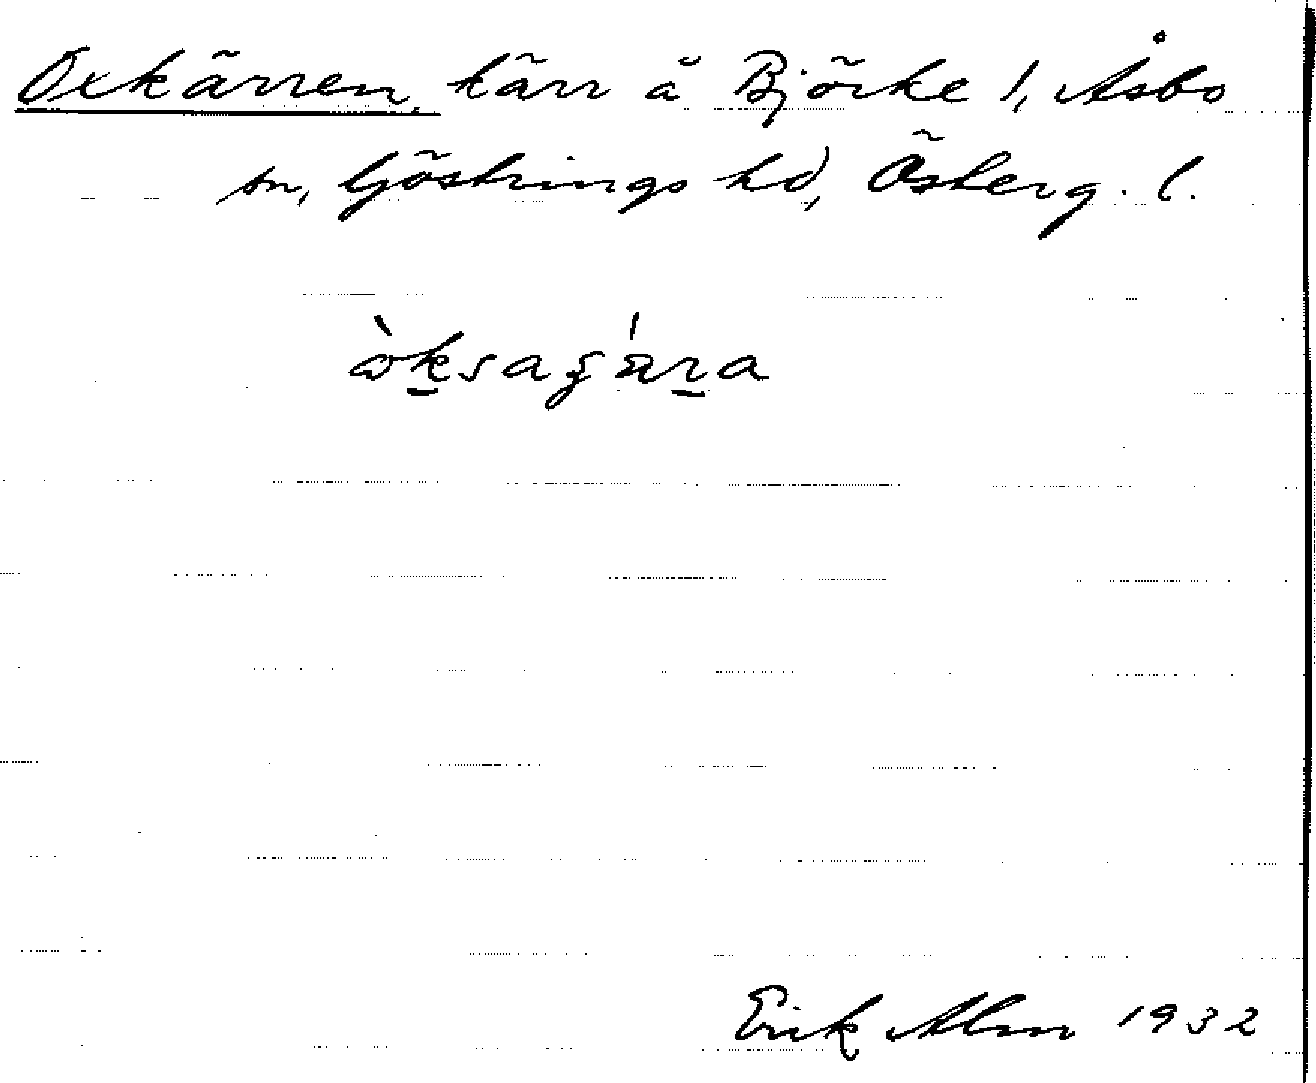 Oxkärren, kärr å Björke 1, Åsbo
sn, Göstrings hd, Österg. l.
Erik Alm 1932